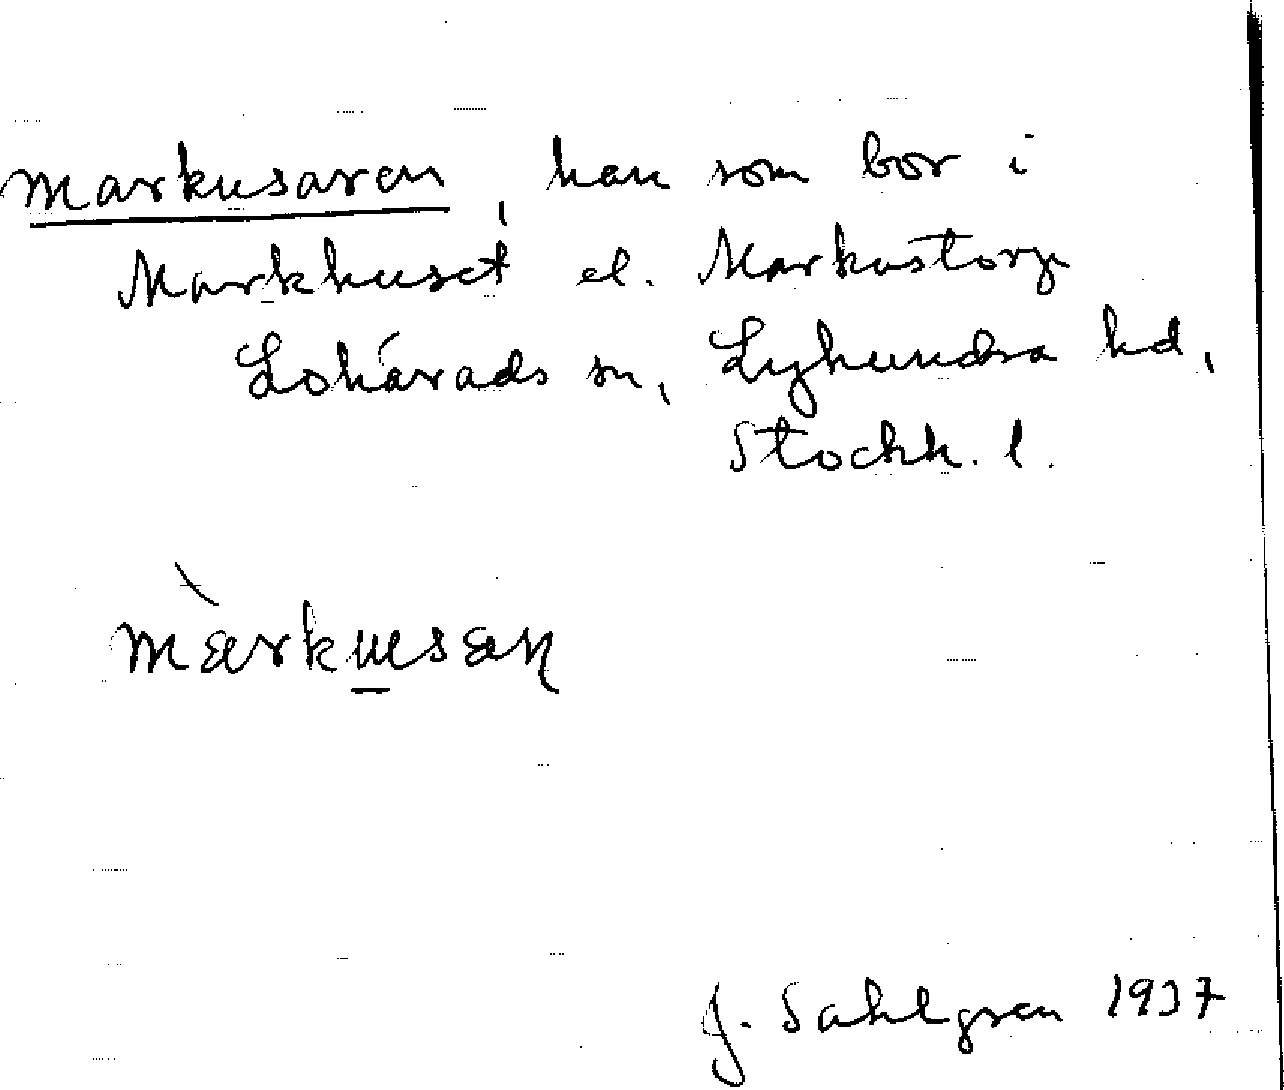 markusaren, han som bor i
Markhuset el. Markustorp
Lohärads sn, Lyhundra hd,
Stockh. l.
màrkusaɳ
J. Sahlgren 1937